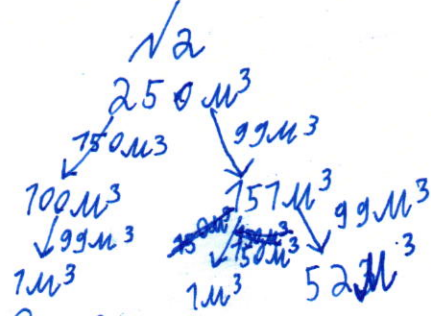 №2
250 м³
150м³ 99м³
100м³ 151м³
99м³ 150м³ 99м³
1м³ 1м³ 52м³